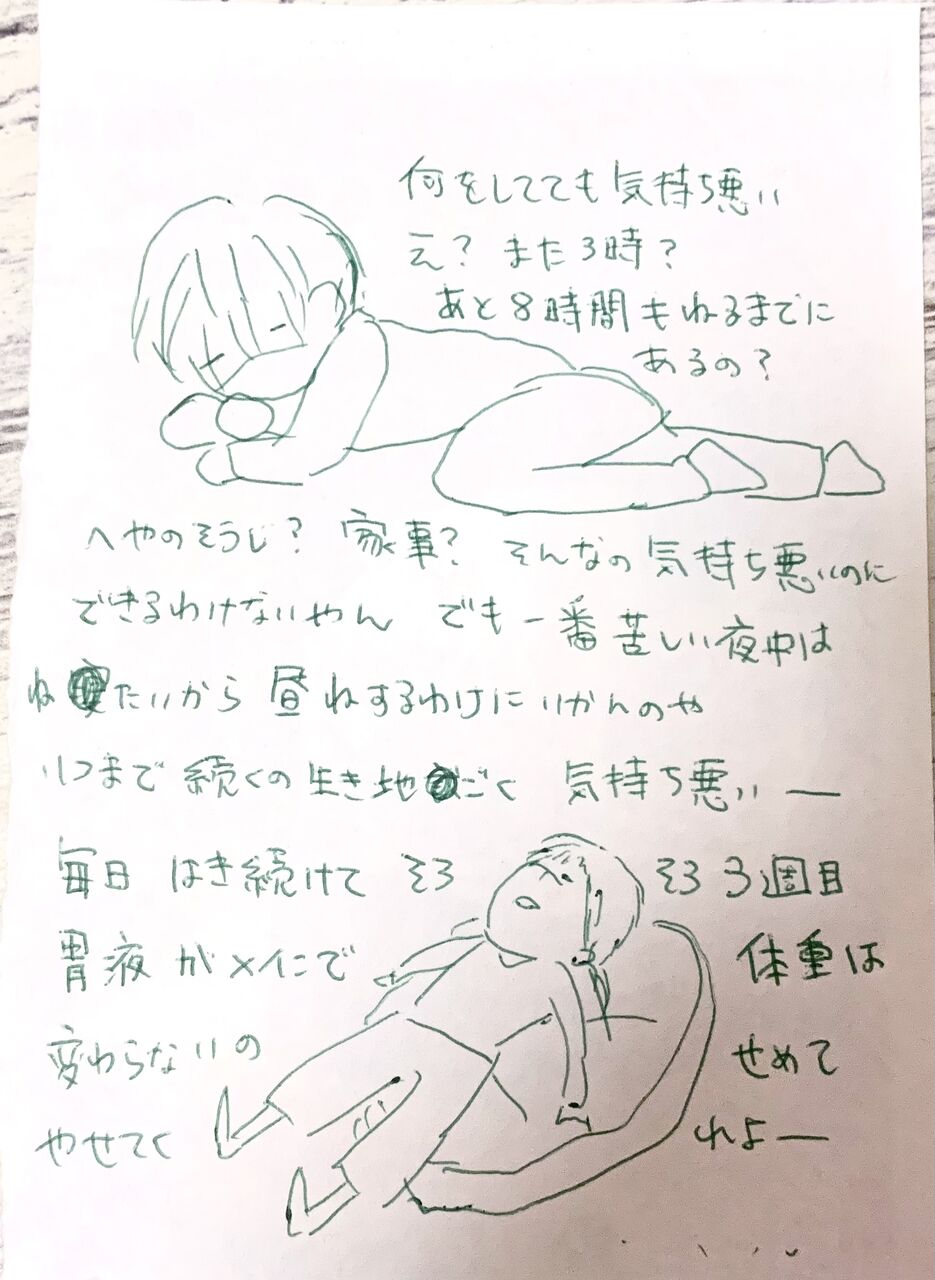 何をしてても気持ち悪い
え？また3時？
あと8時間もねるまでに
あるの？
へやのそうじ？家事？そんなの気持ち悪いのに
できるわけないやん でも一番苦しい夜中は
ねたいから昼ねするわけにいかんのや
いつまで続くの生き地ごく 気持ち悪いー
毎日はき続けてそろそろ3週目
胃液がメインで体重は
変わらないのせめて
やせてくれよー